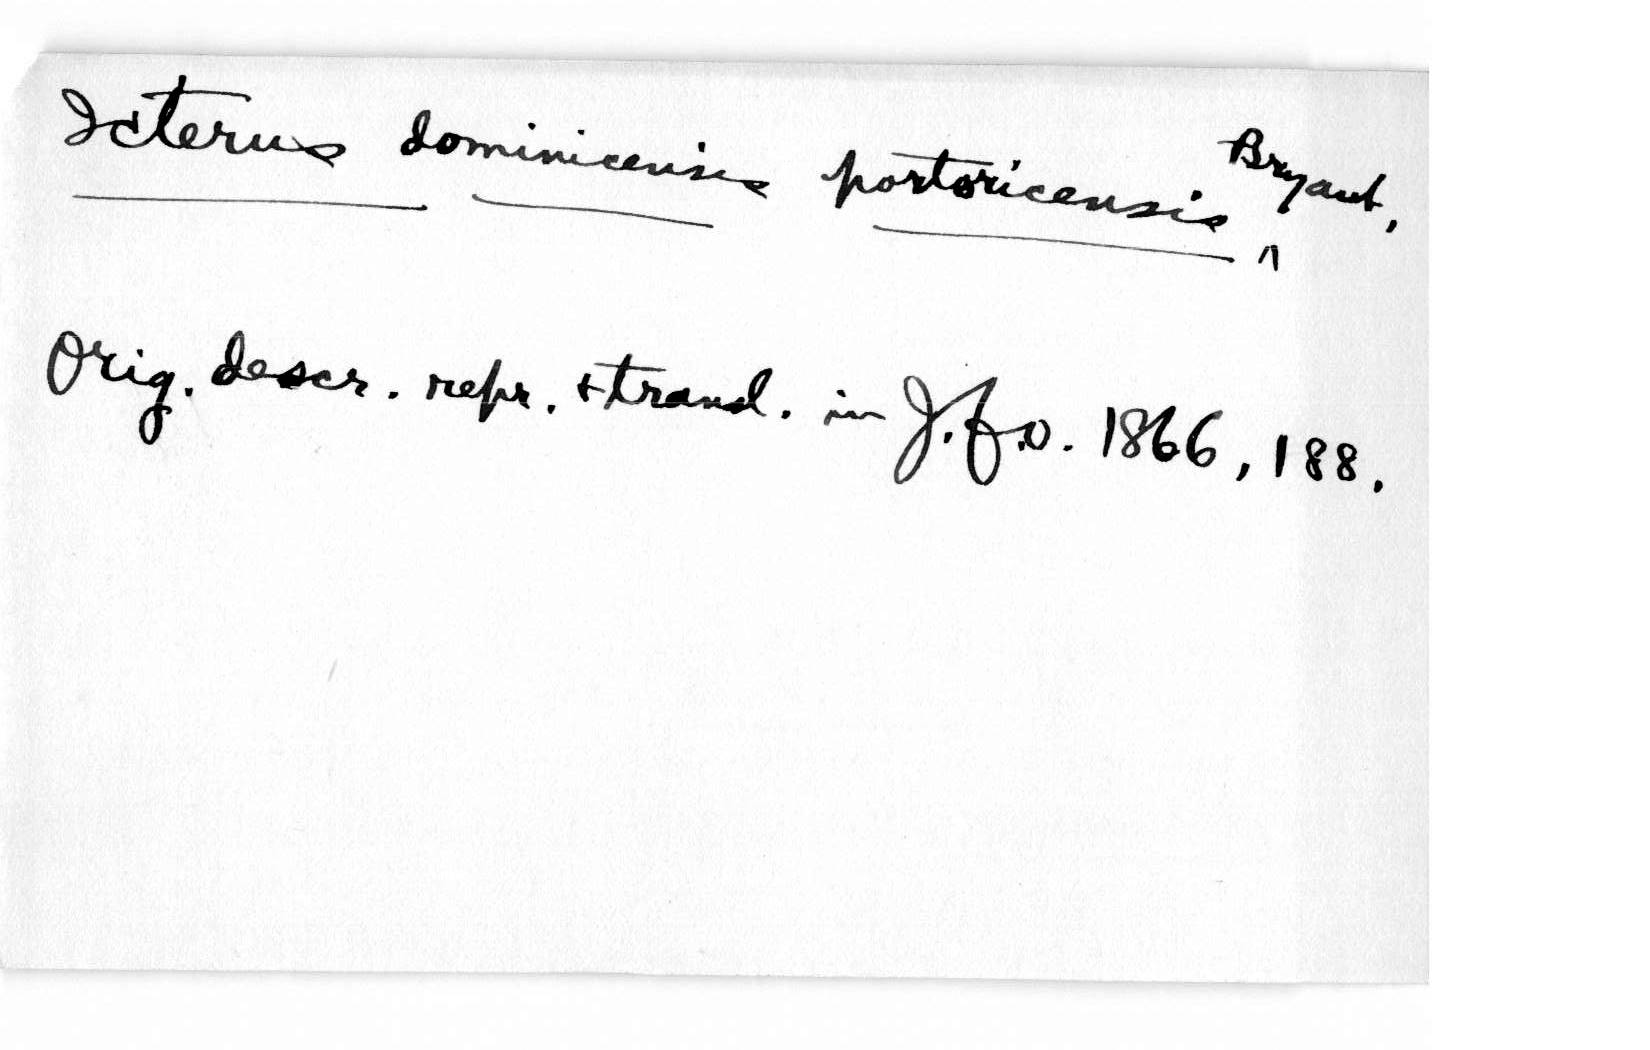 Icterus dominicensis portoricensis Bryant,
Orig. descr. repr. + transl. in J.f.O. 1866, 188.